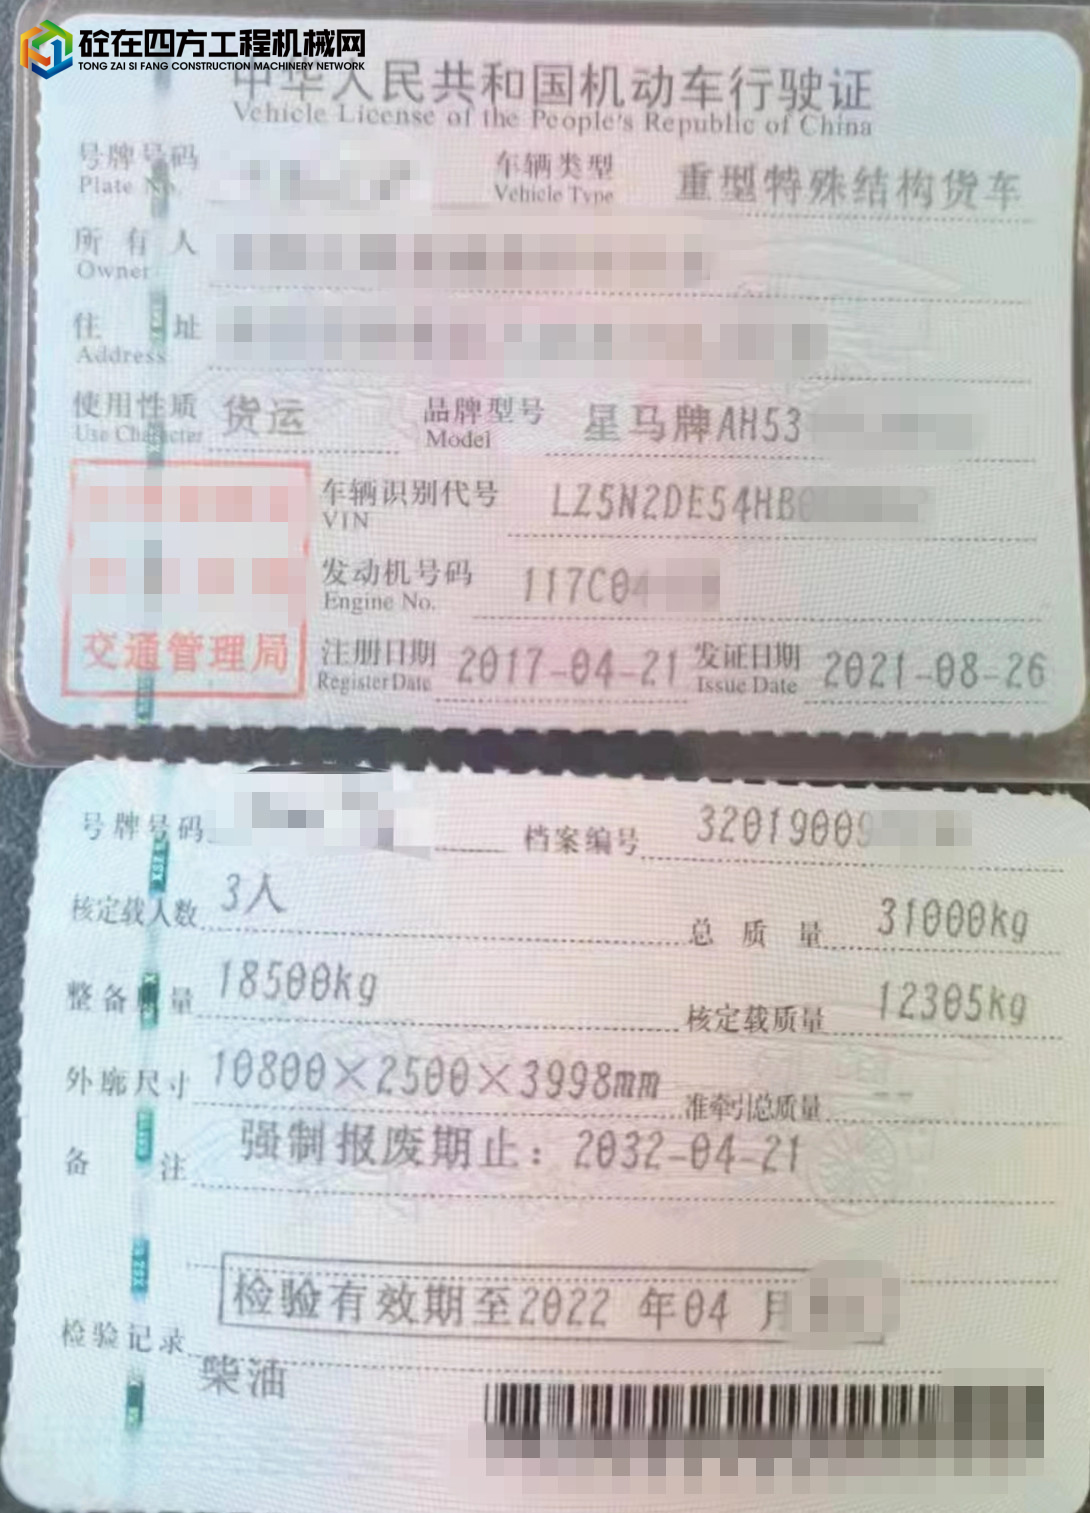 砼在四方工程机械网
TONG ZAI SI FANG CONSTRUCTION MACHINERY NETWORK
中华人民共和国机动车行驶证
Vehicle License of the People's Republic of China
号牌号码 车辆类型 重型特殊结构货车
Plate No. Vehicle Type
所有人
Owner
住址
Address
使用性质 货运 品牌型号 星马牌AH53
Use Character Model
车辆识别代号 LZ5N2DE54HB0
VIN
发动机号码 117C04
Engine No.
交通管理局
注册日期 2017-04-21 发证日期 2021-08-26
Register Date Issue Date
号牌号码 档案编号 32019009
核定载人数 3人 总质量 31000kg
整备质量 18500kg 核定载质量 12305kg
外廓尺寸 10800×2500×3998mm 准牵引总质量 --
备注 强制报废期止：2032-04-21
检验有效期至2022 年04 月
检验记录
柴油